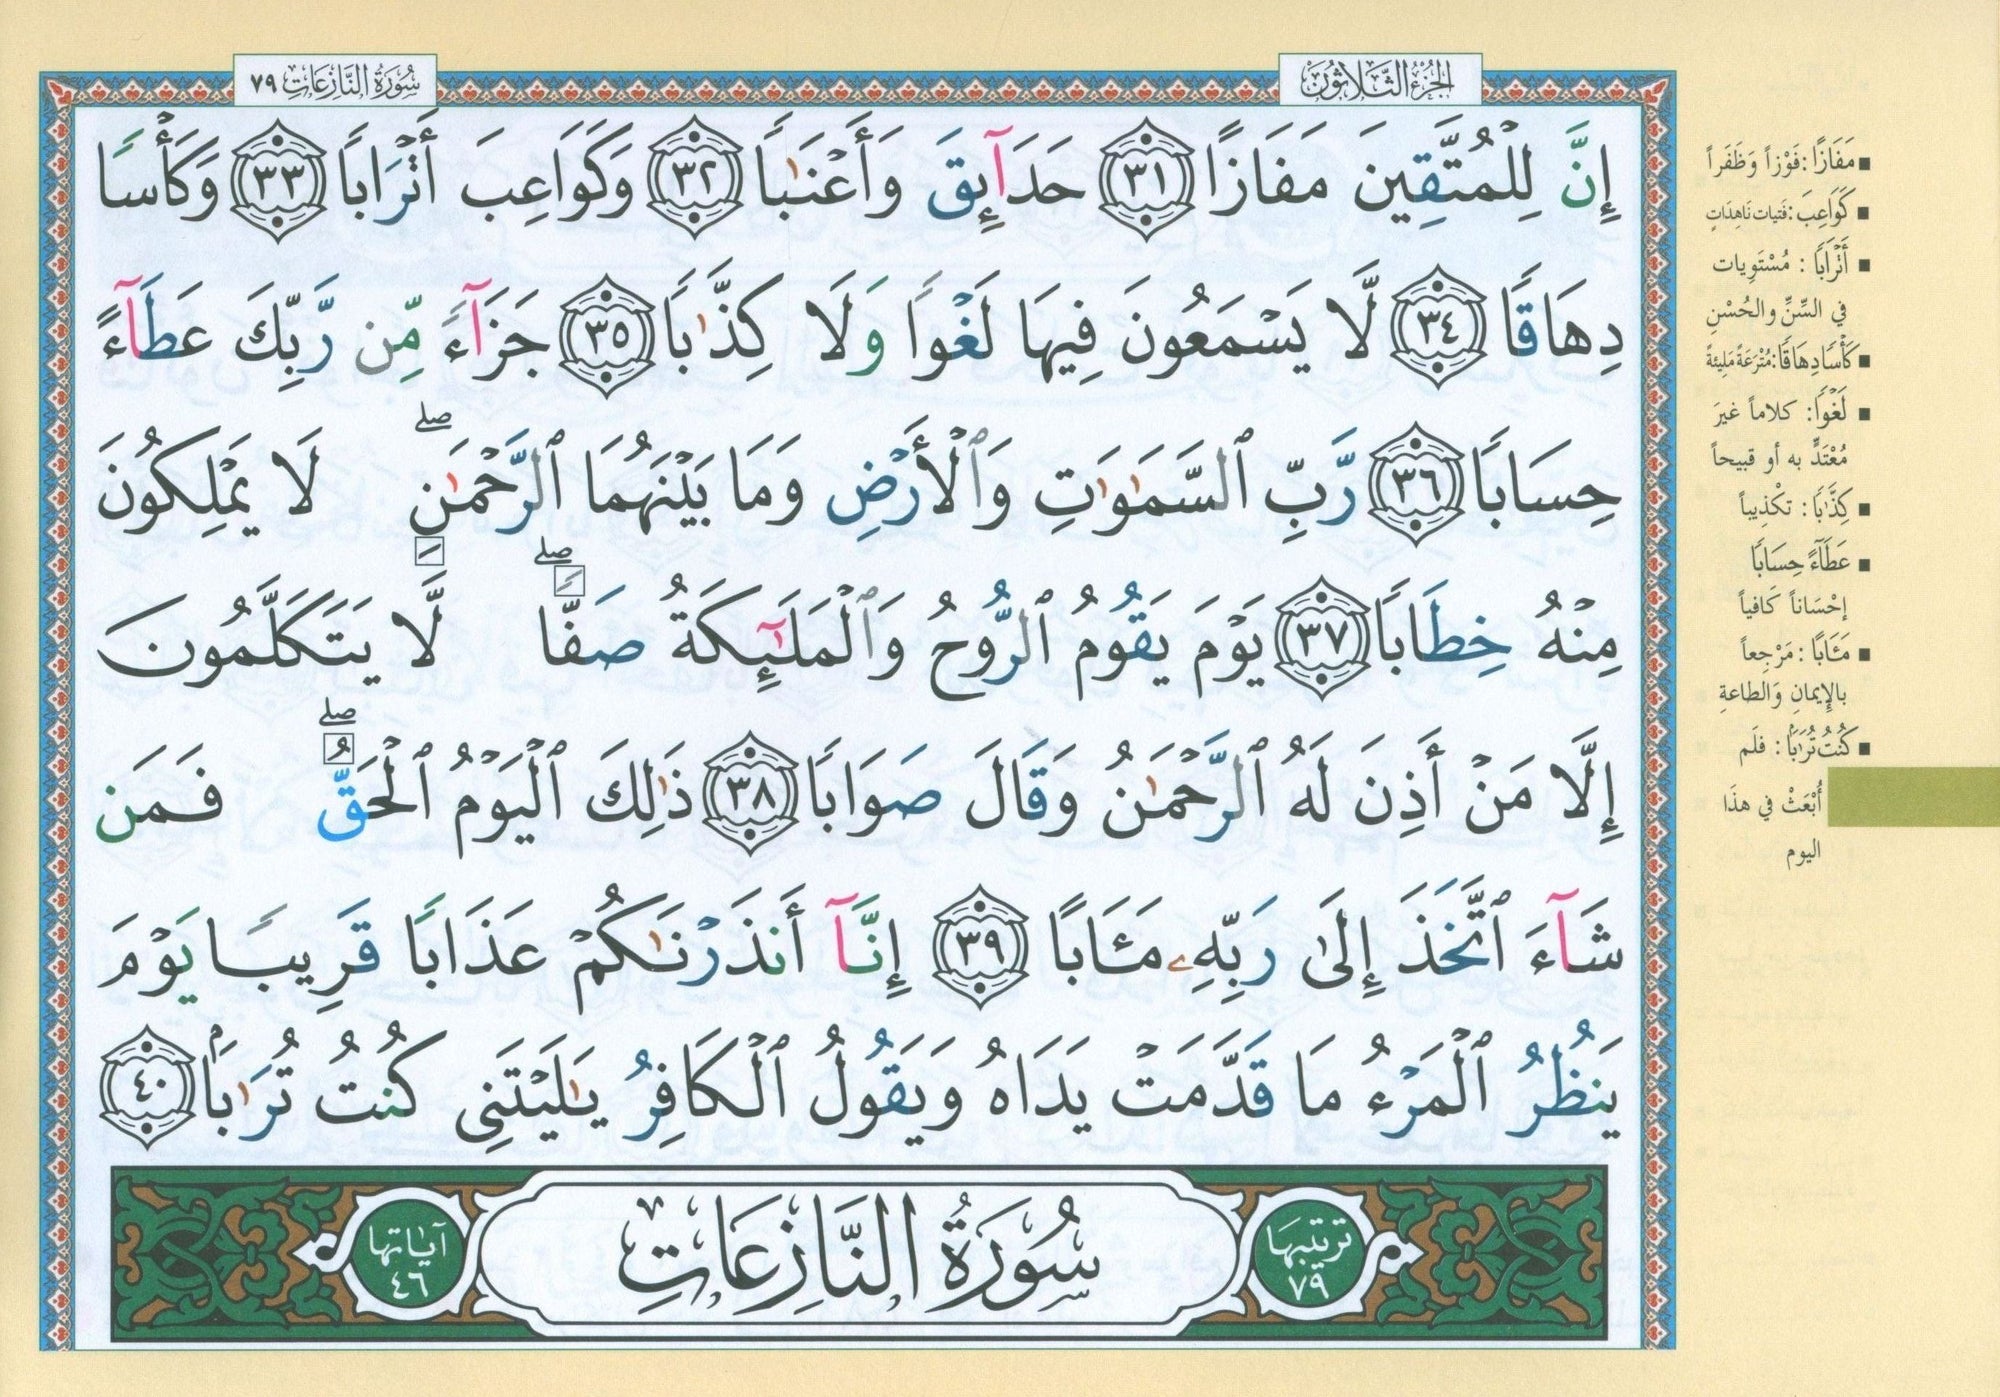 الجزء الثلاثون
سورة النازعات ٧٩
إِنَّ لِلْمُتَّقِينَ مَفَازًا ٣١ حَدَآئِقَ وَأَعْنَٰبًا ٣٢ وَكَوَاعِبَ أَتْرَابًا ٣٣ وَكَأْسًا
دِهَاقًا ٣٤ لَّا يَسْمَعُونَ فِيهَا لَغْوًا وَلَا كِذَّٰبًا ٣٥ جَزَآءً مِّن رَّبِّكَ عَطَآءً
حِسَابًا ٣٦ رَّبِّ ٱلسَّمَٰوَٰتِ وَٱلْأَرْضِ وَمَا بَيْنَهُمَا ٱلرَّحْمَٰنِ ۖ لَا يَمْلِكُونَ
مِنْهُ خِطَابًا ٣٧ يَوْمَ يَقُومُ ٱلرُّوحُ وَٱلْمَلَٰٓئِكَةُ صَفًّا ۖ لَّا يَتَكَلَّمُونَ
إِلَّا مَنْ أَذِنَ لَهُ ٱلرَّحْمَٰنُ وَقَالَ صَوَابًا ٣٨ ذَٰلِكَ ٱلْيَوْمُ ٱلْحَقُّ ۖ فَمَن
شَآءَ ٱتَّخَذَ إِلَىٰ رَبِّهِۦ مَـَٔابًا ٣٩ إِنَّآ أَنذَرْنَٰكُمْ عَذَابًا قَرِيبًا يَوْمَ
يَنظُرُ ٱلْمَرْءُ مَا قَدَّمَتْ يَدَاهُ وَيَقُولُ ٱلْكَافِرُ يَٰلَيْتَنِى كُنتُ تُرَٰبًۢا ٤٠
ترتيبها ٧٩
سُورَةُ النَّازِعَاتِ
آياتها ٤٦
■ مَفَازًا: فَوْزاً وَظَفَراً
■ كَوَاعِبَ: فَتيات نَاهِدَاتٍ
■ أَتْرَابًا: مُسْتَوِيات
في السِّنِّ والحُسْنِ
■ كَأْسًا دِهَاقًا: مُتْرَعَةً مَلِيئةً
■ لَغْوًا: كلاماً غيرَ
مُعْتَدٍّ به أو قبيحاً
■ كِذَّٰبًا: تكْذِيباً
■ عَطَآءً حِسَابًا
إحْسَاناً كَافياً
■ مَـَٔابًا: مَرْجِعاً
بالإيمانِ وَالطاعةِ
■ كُنتُ تُرَٰبًۢا: فلَم
أُبْعَثْ في هذَا
اليوم